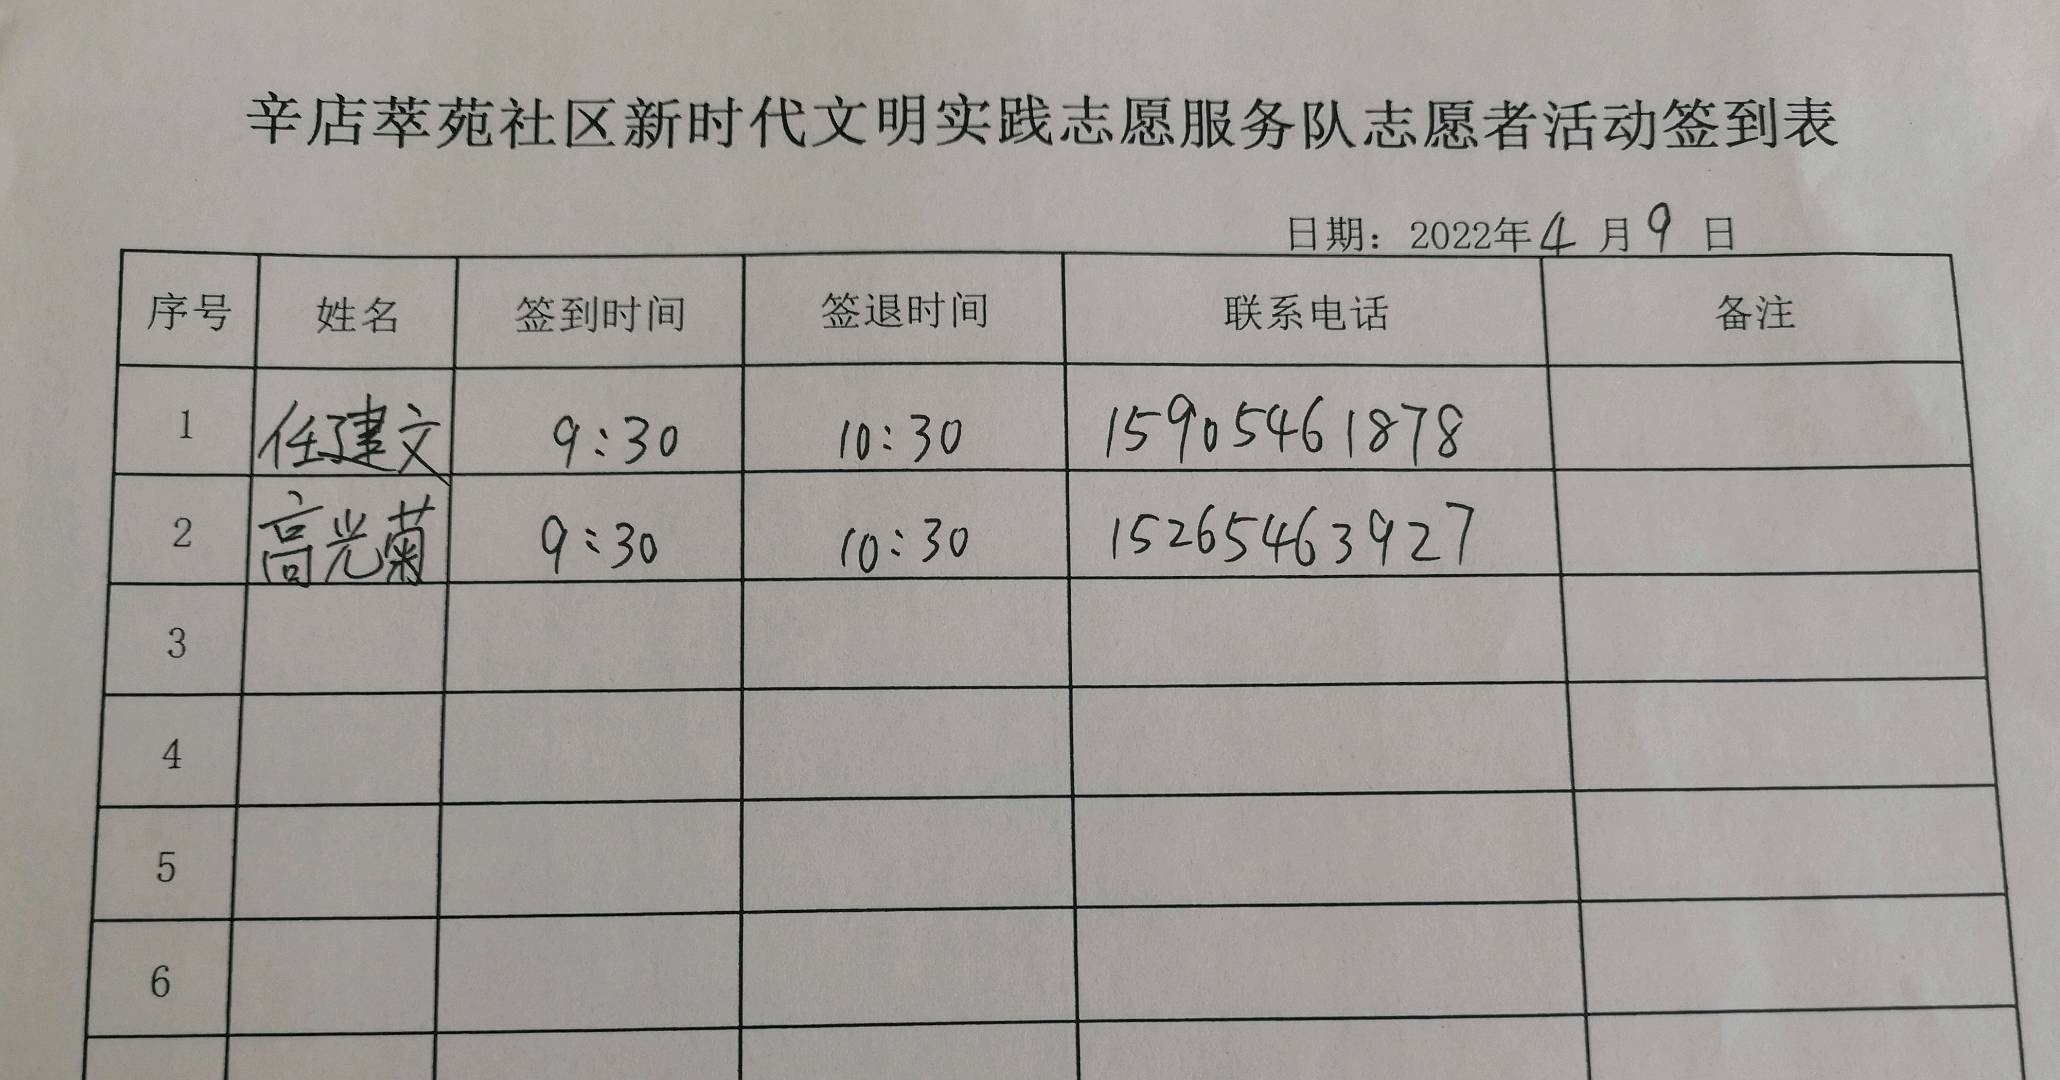 辛店萃苑社区新时代文明实践志愿服务队志愿者活动签到表
日期：2022年4月9日
序号 姓名 签到时间 签退时间 联系电话 备注
1 任建文 9:30 10:30 15905461878
2 高光菊 9:30 10:30 15265463927
3
4
5
6